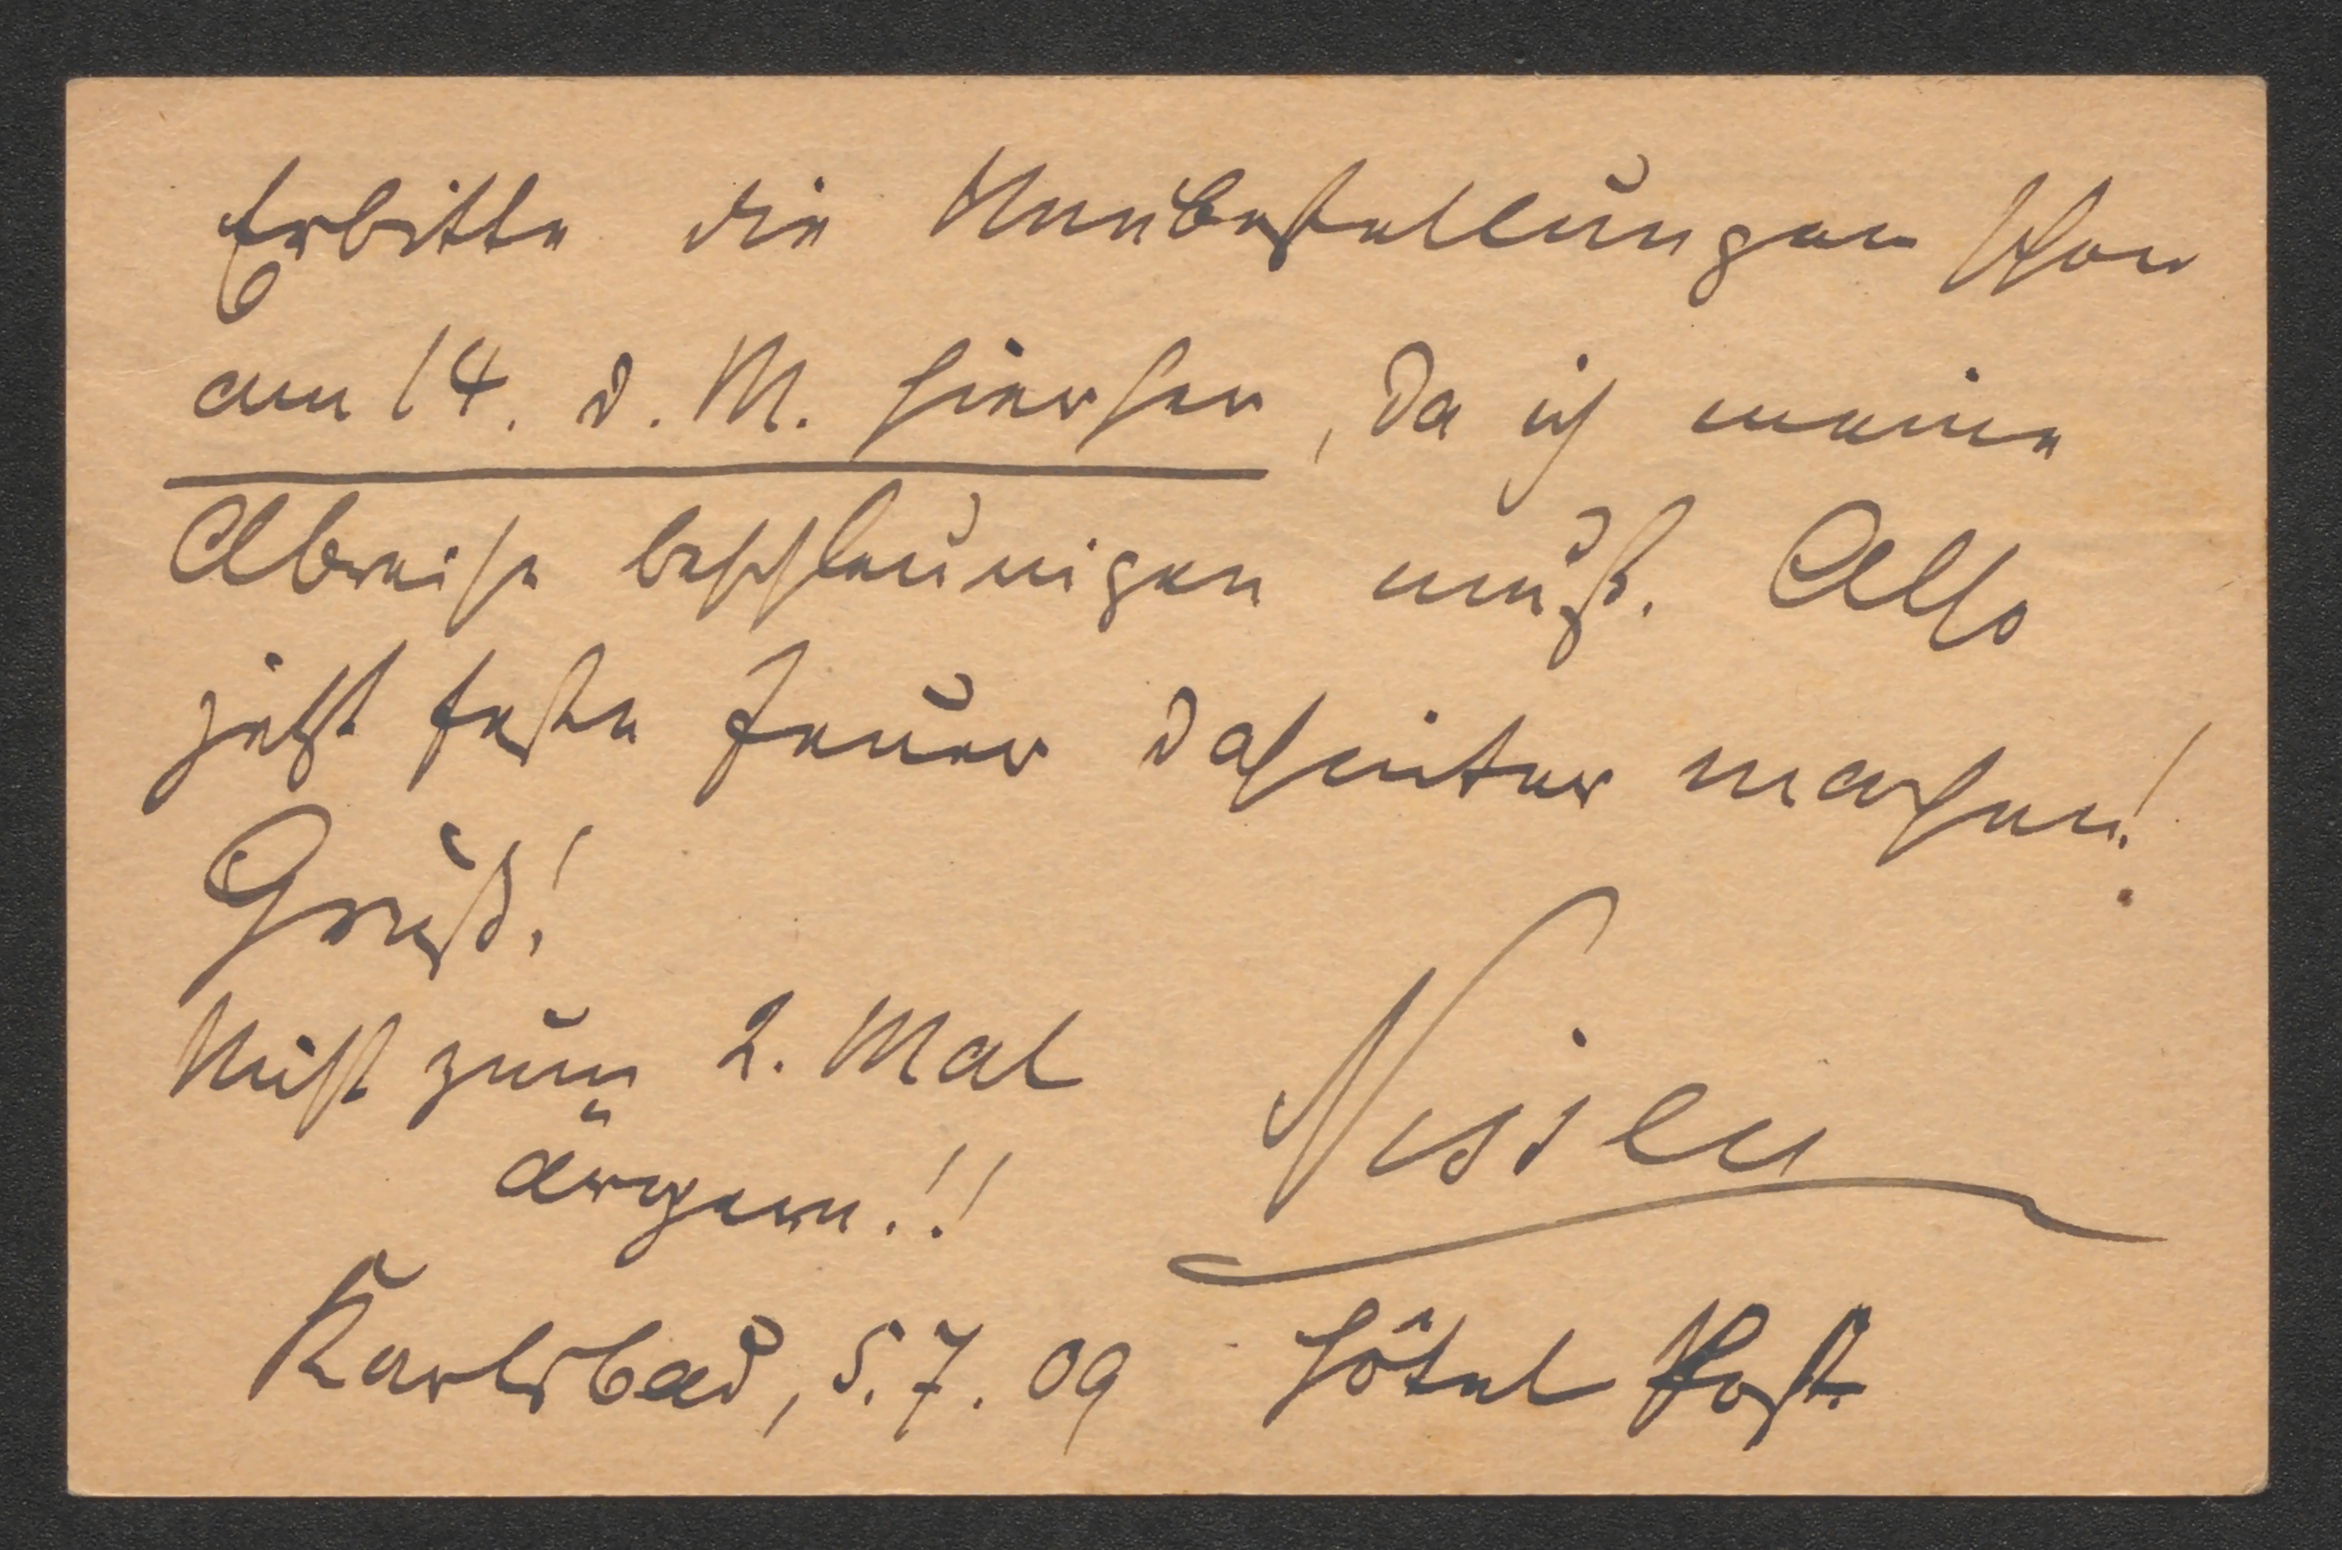 Erbitte die Neubestellungen schon
am 14. d. M. hierher, da ich meine
Abreise beschleunigen muß. Also
jetzt feste Feuer dahinter machen!
Gruß!
Nicht zum 2. Mal
ärgern!!
Nissen
Karlsbad, 5.7.09 Hôtel Post